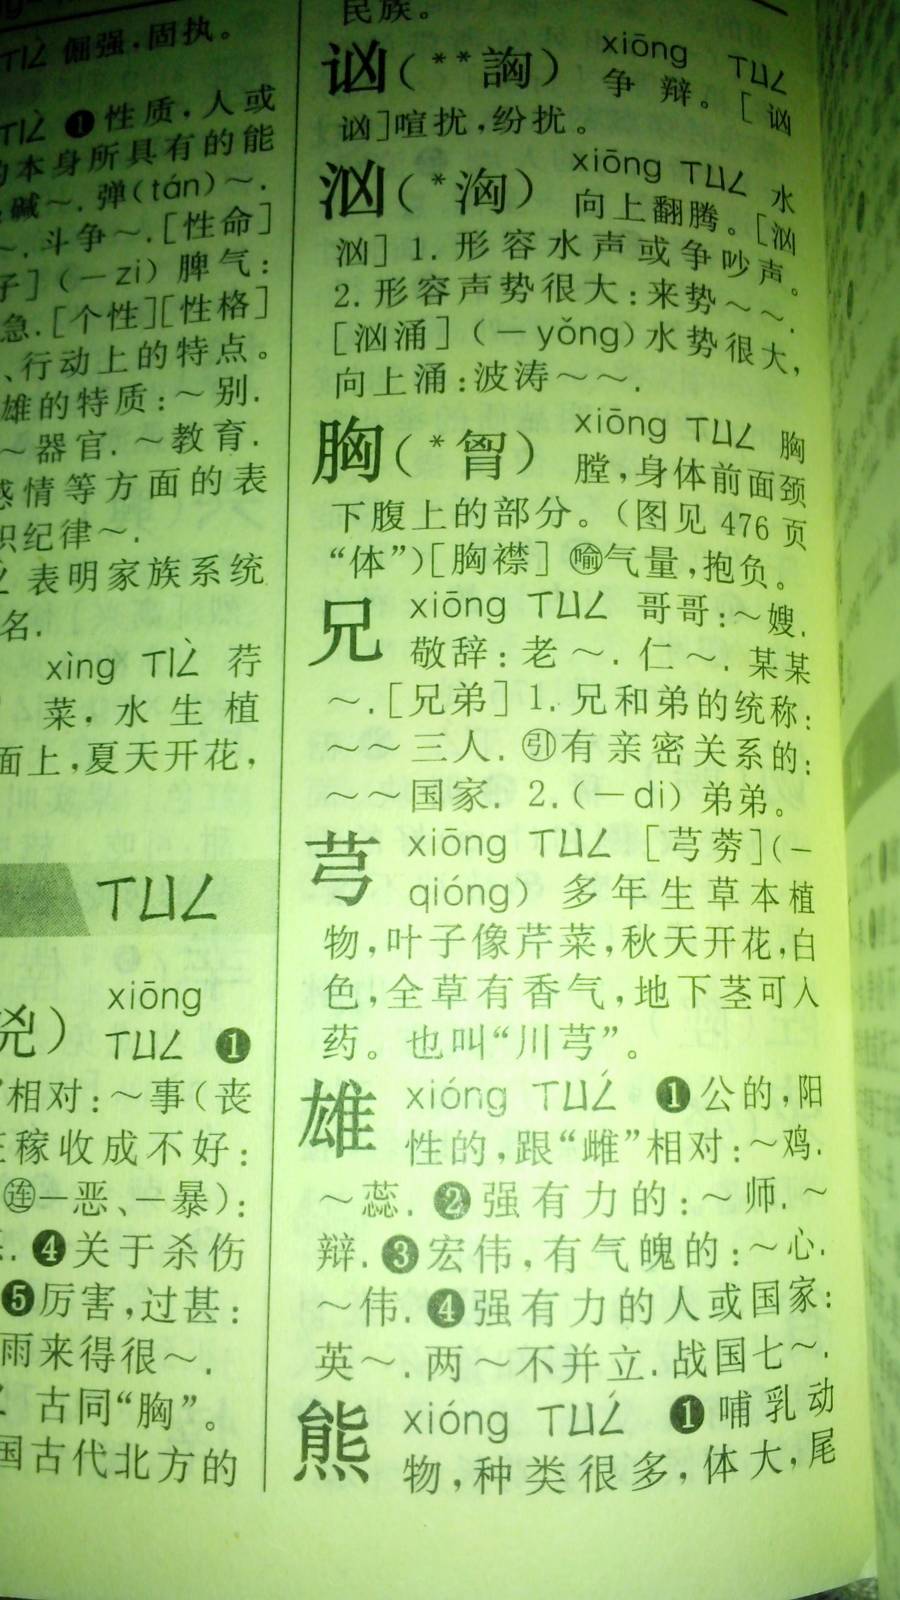 ㄒㄧㄥˋ 倔强,固执。
ㄒㄧㄥˋ ❶性质,人或
的本身所具有的能
碱~. 弹(tán)~.
~. 斗争~.[性命]
子](-zi) 脾气:
急.[个性][性格]
、行动上的特点。
雄的特质:~别.
~器官. ~教育.
感情等方面的表
识纪律~.
表明家族系统
名.
xìng ㄒㄧㄥˋ 荇
菜,水生植
面上,夏天开花,
ㄒㄩㄥ
兇) xiōng
ㄒㄩㄥ ❶
相对:~事(丧
庄稼收成不好:
㊣一恶、一暴):
❹关于杀伤
❺厉害,过甚:
雨来得很~.
古同“胸”。
国古代北方的
民族。
讻(**詾) xiōng ㄒㄩㄥ
争辩。[讻
讻]喧扰,纷扰。
汹(*洶) xiōng ㄒㄩㄥ 水
向上翻腾。[汹
汹] 1. 形容水声或争吵声。
2. 形容声势很大:来势~~.
[汹涌](-yǒng)水势很大,
向上涌:波涛~~.
胸(*胷) xiōng ㄒㄩㄥ 胸
膛,身体前面颈
下腹上的部分。(图见 476 页
“体”)[胸襟] ㊎气量,抱负。
兄 xiōng ㄒㄩㄥ 哥哥:~嫂.
敬辞:老~. 仁~. 某某
~.[兄弟] 1. 兄和弟的统称:
~~三人. 引有亲密关系的:
~~国家. 2.(-di) 弟弟。
芎 xiōng ㄒㄩㄥ [芎䓖](-
qióng) 多年生草本植
物,叶子像芹菜,秋天开花,白
色,全草有香气,地下茎可入
药。也叫“川芎”。
雄 xióng ㄒㄩㄥˊ ❶公的,阳
性的,跟“雌”相对:~鸡.
~蕊. ❷强有力的:~师. ~
辩. ❸宏伟,有气魄的:~心.
~伟. ❹强有力的人或国家:
英~. 两~不并立. 战国七~.
熊 xióng ㄒㄩㄥˊ ❶哺乳动
物,种类很多,体大,尾